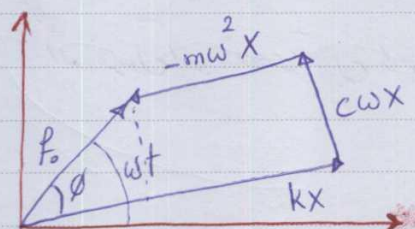 -mω²X
cωX
f₀
φ
ωt
kX